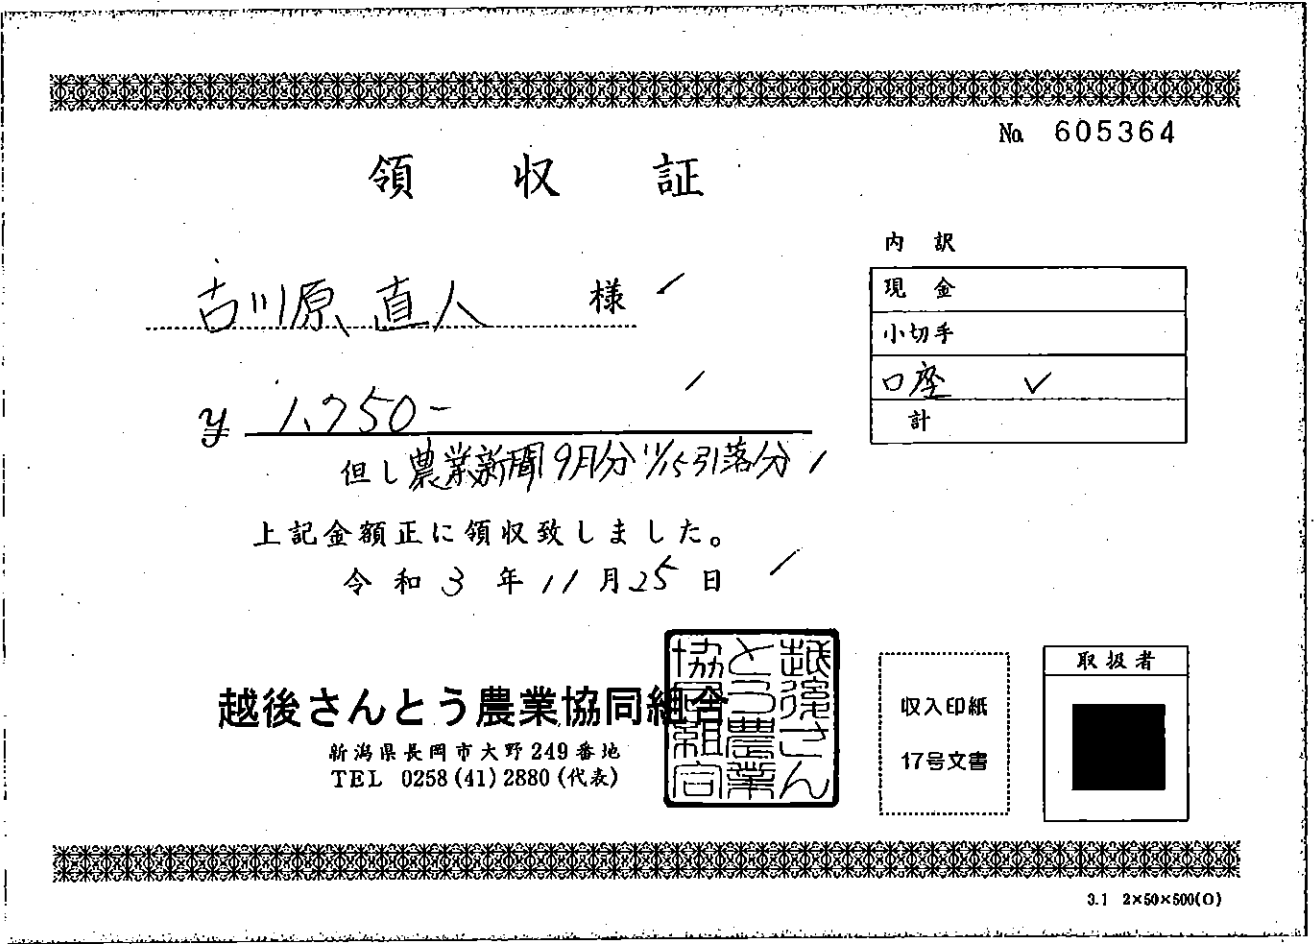 No. 605364
領収証
古川原 直人 様
内訳
現金
小切手
口座 ✓
計
¥ 1,750-
但し 農業新聞9月分 11/15引落分
上記金額正に領収致しました。
令和3年11月25日
越後さんとう農業協同組合
新潟県長岡市大野249番地
TEL 0258(41)2880(代表)
越後さん
とう農業
協同組合
収入印紙
17号文書
取扱者
3.1 2×50×500(O)